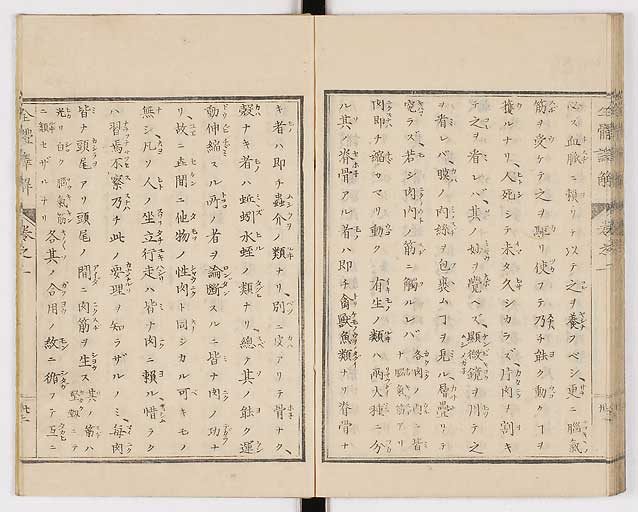 心ス血脈ニ頼リテ以テ之ヲ養フベシ、更ニ腦氣
筋ヲ受ケテ之ヲ驅リ使フテ乃チ能ク動クヿヲ
獲ルナリ人死シテ未タ久シカラズ片肉ヲ割キ
テ之ヲ看レバ其ノ妙ヲ覺ヘズ、顯微鏡ヲ用テ之
ヲ看レバ、暎ノ肉絲ヲ包裹ムヿヲ見ル層疊リテ
窕ラス若シ肉内ノ筋ニ觸ルレバ各肉ノ内ニ皆ナ腦氣筋アリ
肉即チ縮カマリ動ク有生ノ類ハ兩大種ニ分
ル其ノ脊骨アル者ハ即チ禽獸魚類ナリ脊骨ナ
全體譁解 卷之一
キ者ハ即チ蟲介ノ類ナリ、別ニ皮アリテ骨ナク、
殻ナキ者ハ蚯蚓水蛭ノ類ナリ總テ其ノ能ク運
動伸縮スル所ノ者ヲ論斷スルニ皆ナ肉ノ功ナ
リ故ニ世間ニ他物ノ性肉ト同シカル可キモノ
無シ凡リ人ノ坐立行走ハ皆ナ肉ニ頼ル惜ラク
ハ習焉不察乃チ此ノ要理ヲ知ラザルノミ、毎肉
皆ナ頭尾アリ頭尾ノ間ニ肉筋ヲ生ス其ノ筋ハ堅韌ニテ
光リ白ク腦氣筋ニ類セザルナリ各其ノ合用ノ紋ニ循フテ互ニ